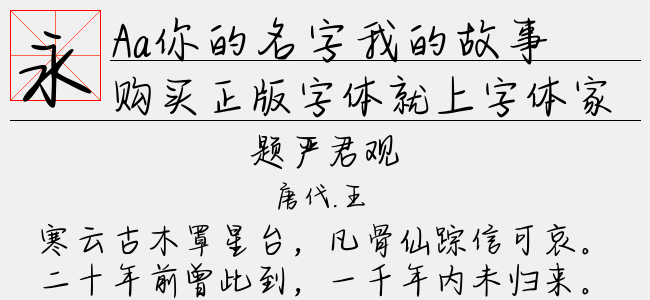 永
Aa你的名字我的故事
购买正版字体就上字体家
题严君观
唐代.王
寒云古木罩星台，凡骨仙踪信可哀。
二十年前曾此到，一千年内未归来。